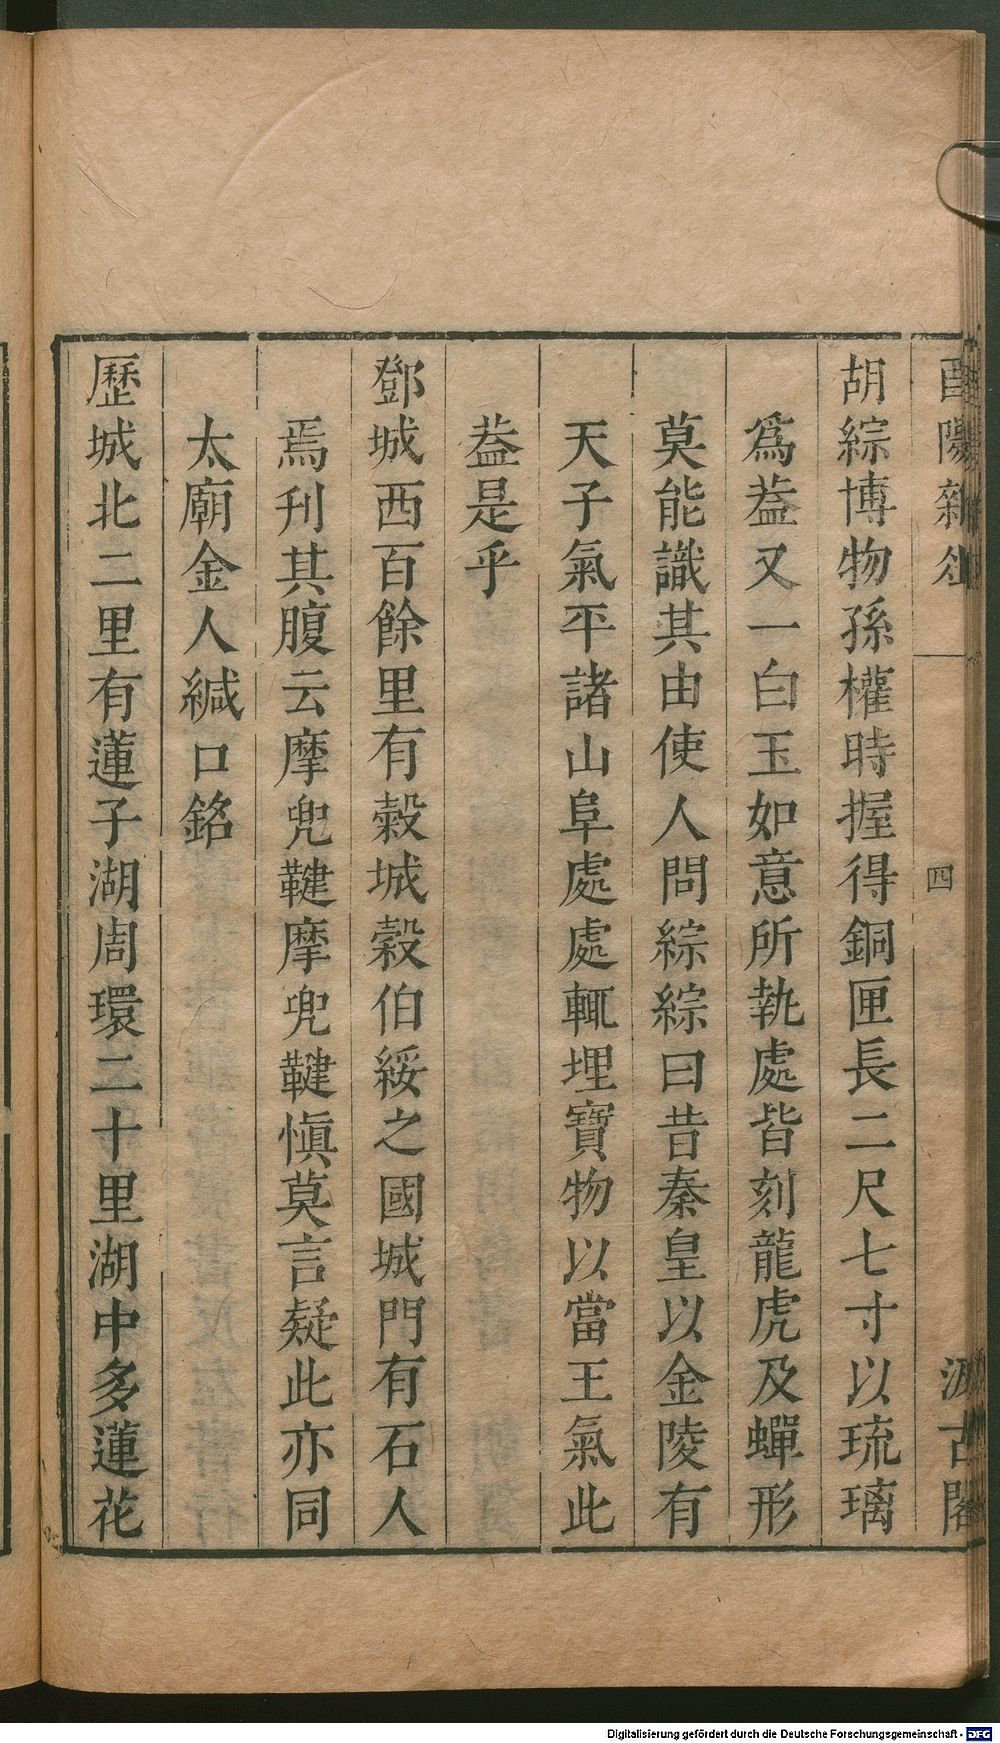 酉陽雜俎
四
汲古閣
胡綜博物孫權時握得銅匣長二尺七寸以琉璃
爲葢又一白玉如意所執處皆刻龍虎及蟬形
莫能識其由使人問綜綜曰昔秦皇以金陵有
天子氣平諸山阜處處輒埋寶物以當王氣此
葢是乎
鄧城西百餘里有榖城榖伯綏之國城門有石人
焉刊其腹云摩兜鞬摩兜鞬慎莫言疑此亦同
太廟金人緘口銘
歷城北二里有蓮子湖周環二十里湖中多蓮花
Digitalisierung gefördert durch die Deutsche Forschungsgemeinschaft - DFG